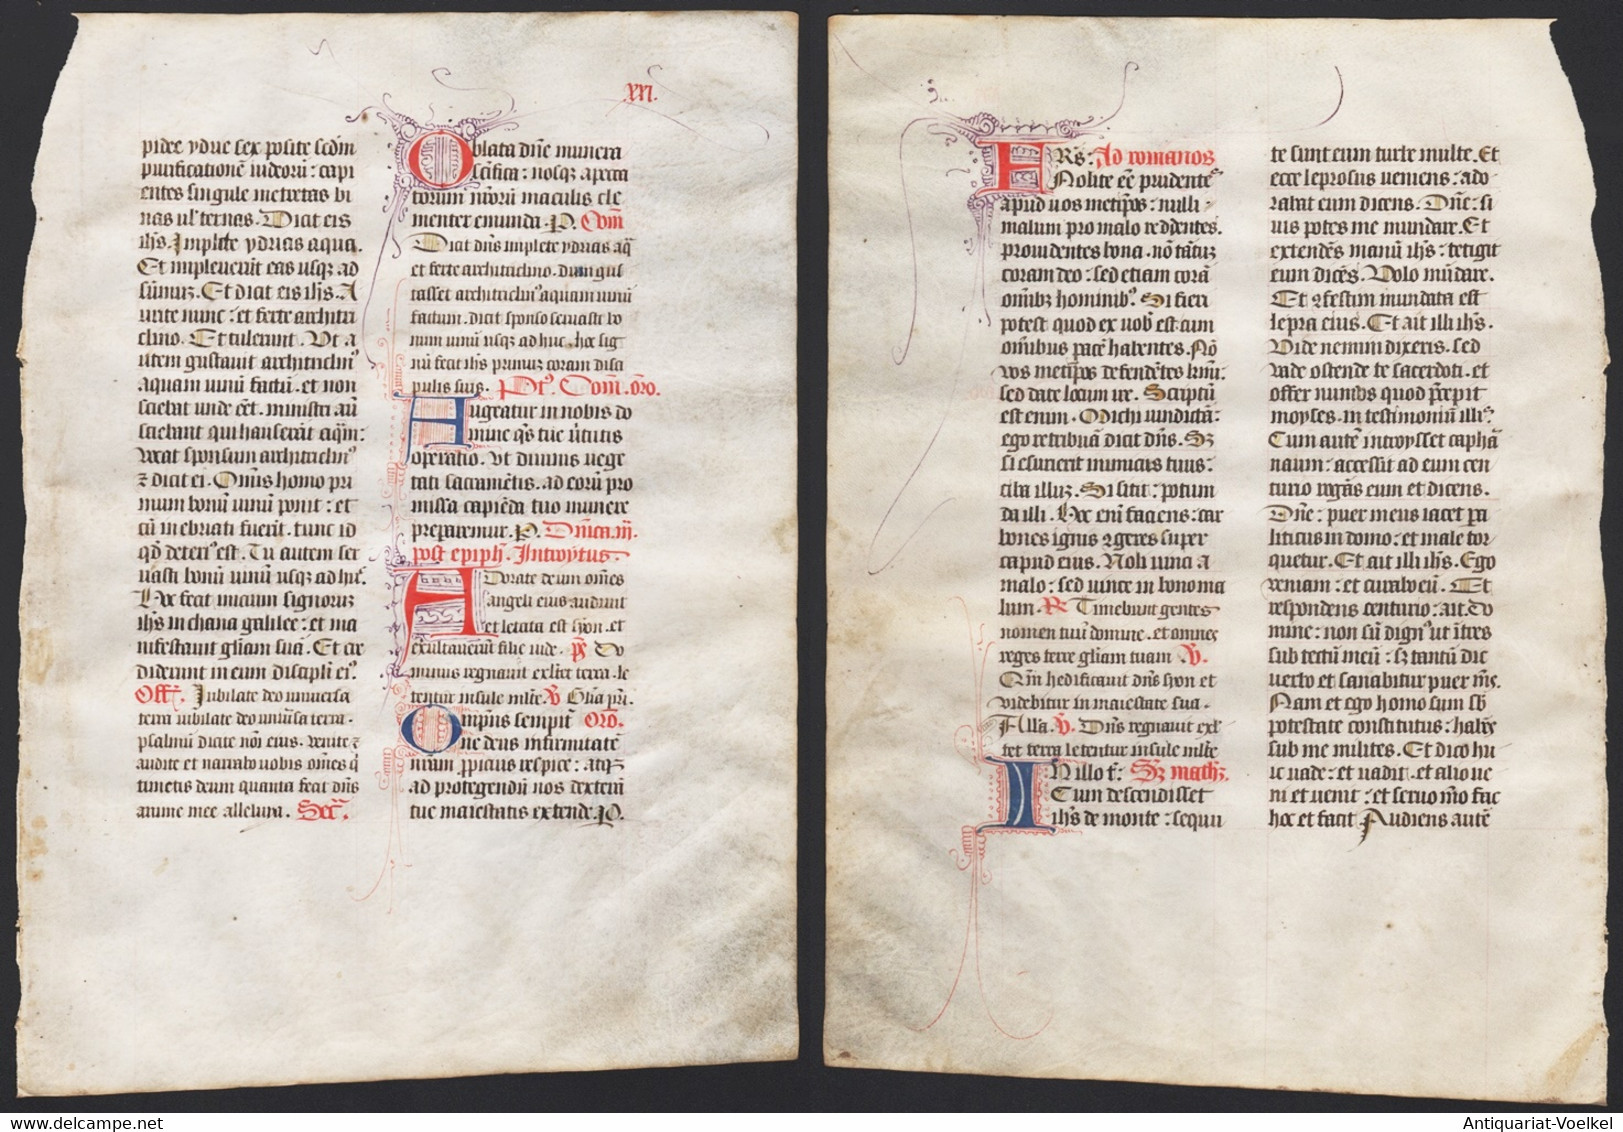 xxi.
pidee ydrie sex posite scdm
purificationē iudeorū : capi
entes singule metretas bi
nas ul' ternas. Dicit eis
ihs. Implete ydrias aqua.
Et impleverūt eas usqz ad
sūmuz. Et dicit eis ihs. A
urite nunc : et ferte architri
clino. Et tulerunt. Ut a
utem gustavit architriclin9
aquam vinū factū . et non
sciebat unde eēt. ministri aū
sciebant qui hauserāt aqm :
vocat sponsum architriclin9
z dicit ei. Om̄is homo pri
mum bonū vinū ponit : et
cū inebriati fuerīt . tunc id
qd deteri9 est. Tu autem ser
vasti bonū vinū usqz ad huc.
Hoc fecit inicium signoruz
ihs in chana galilee : et ma
nifestavit gliam suā. Et cre
diderunt in eum discipli ei9.
Off. Iubilate deo universa
terra iubilate deo univ̄sa terra .
psalmū dicite nōi eius . venite z
audite et narrabo vobis om̄es q̄
timetis deum quanta fecit dn̄s
anime mee alleluya. Secr̄.
Oblata dn̄e munera
scifica : nosqz a pecca
torum nr̄orū maculis cle
menter emunda. P. Com̄
Dicit dn̄s implete ydrias aq̄
et ferte architriclino . dum gus
tasset architriclin9 aquam vinū
factum . dicit sponso servasti bo
num vinū usqz ad huc . hoc sig
nū fecit ihs primuz coram disci
pulis suis. Pt9. Com̄. oro.
Augeatur in nobis do
mine qs tue v̄tutis
operatio . ut divinis vege
tati sacramētis . ad eorū pro
missa capiēda tuo munere
preparemur. P. Dn̄ica. iii.
post epiph. Introytus.
Adorate deum om̄es
angeli eius audivit
et letata est syon . et
exultaverūt filie iude . ps Do
minus regnavit exltet terra . le
tentur insule mlte. V Glia pri.
Omp̄ns sempitn̄ Oro.
ne deus infirmitatē
nr̄am ppicius respice : atqz
ad protegendū nos dexterā
tue maiestatis extende. P.
FRs : Ad romanos
Nolite eē prudentes
apud vos metip̄os : nulli
malum pro malo reddentes.
providentes bona . nō tātuz
coram deo : sed etiam corā
om̄ibz hominib9. Si fieri
potest quod ex vob est cum
om̄ibus pacē habentes. Nō
vos metip̄os defendētes krmi :
sed date locum ire. Scriptū
est enim . Michi vindictā :
ego retribuā dicit dn̄s. Sz
si esurierit inimicus tuus :
ciba illuz. Si sitit : potum
da illi. Hoc eni faciens : car
bones ignis 9geres super
caput eius. Noli vinci a
malo : sed vince in bono ma
lum. R Timebunt gentes
nomen tuū domine . et omnes
reges terre gliam tuam V.
Qm̄ hedificavit dn̄s syon et
videbitur in maiestate sua.
Alla. V. Dn̄s regnavit exl
tet terra letentur insule mlte
In illo t. Sz math.
Cum descendisset
ihs de monte : secuti
te sunt eum turbe multe. Et
ecce leprosus veniens : ado
rabat eum dicens. Dn̄e : si
vis potes me mundare. Et
extendēs manū ihs : tetigit
eum dicēs. Volo mūdare.
Et 9festim mundata est
lepra eius. Et ait illi ihs.
Vide nemini dixeris. sed
vade ostende te sacerdoti . et
offer munus quod p̄cepit
moyses . in testimoniū illis.
Cum autē introysset capha
naum : accessit ad eum cen
turio rogās eum et dicens.
Dn̄e : puer meus iacet pa
liticus in domo : et male tor
quetur. Et ait illi ihs. Ego
veniam : et curabo eū. Et
respondens centurio : ait. Do
mine : non sū dign9 ut ītres
sub tectū meū : sz tantū dic
verbo et sanabitur puer m̄s.
Nam et ego homo sum sb
potestate constitutus : habēs
sub me milites. Et dico hu
ic vade : et vadit . et alio ve
ni et venit : et servo m̄o fac
hoc et facit Audiens autē
Antiquariat-Voelkel